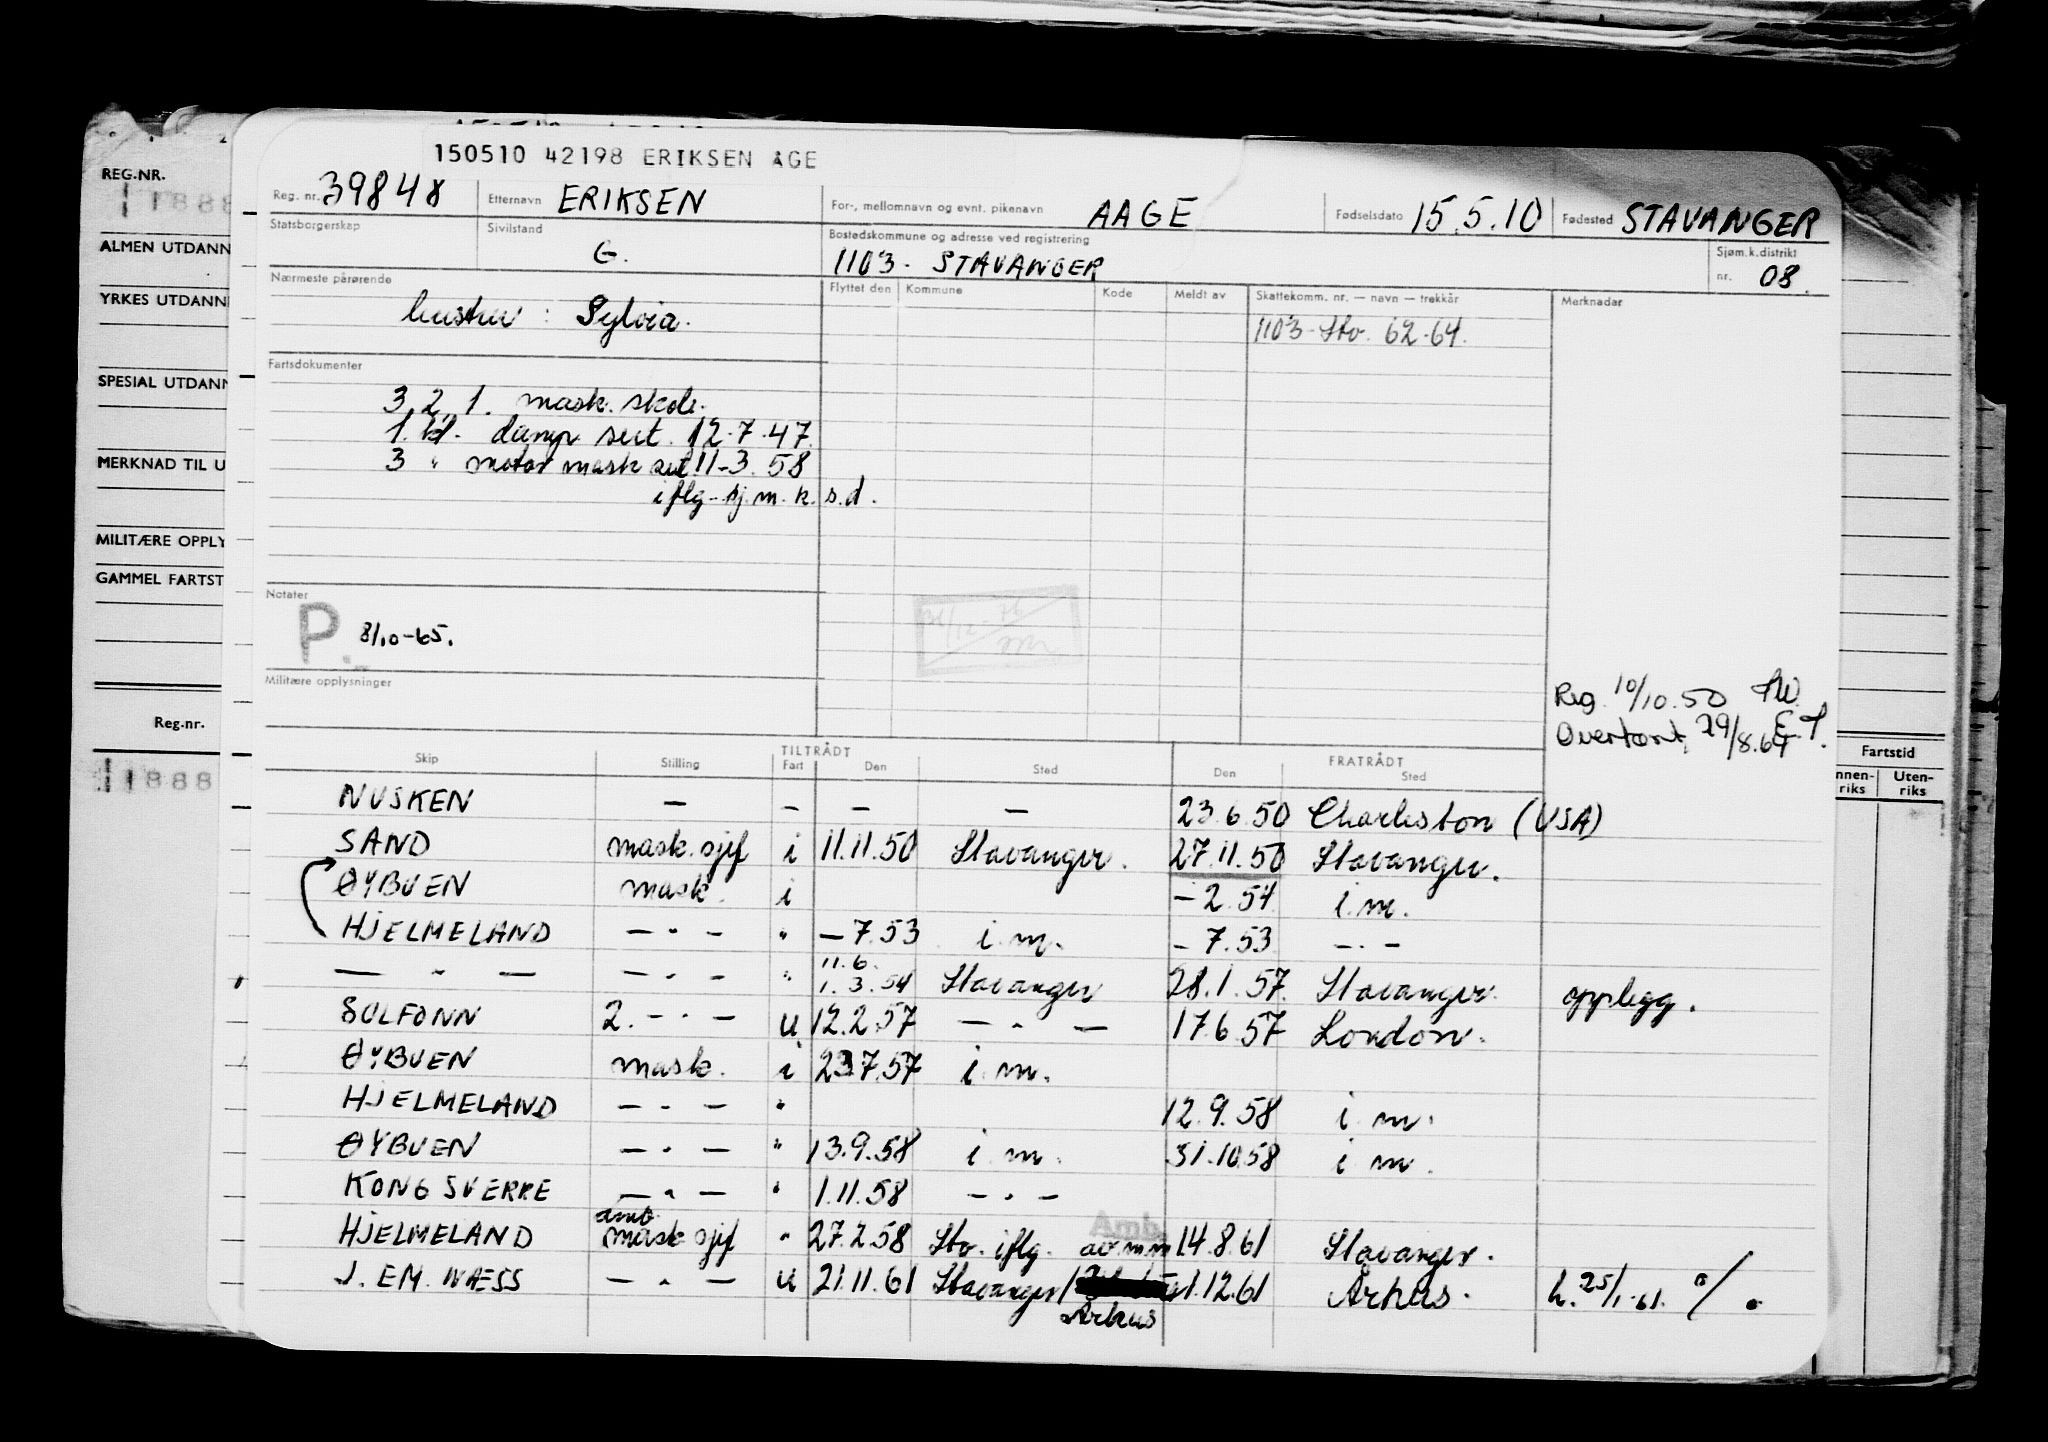 150510 42198 ERIKSEN ÅGE
REG.NR.
1888
ALMEN UTDANN
YRKES UTDANN
SPESIAL UTDANN
MERKNAD TIL U
MILITÆRE OPPLY
GAMMEL FARTST
Reg.nr.
1888
Reg. nr. 39848 Etternavn ERIKSEN For-, mellomnavn og evnt. pikenavn AAGE Fødselsdato 15.5.10 Fødested STAVANGER
Statsborgerskap Sivilstand G. Bostedskommune og adresse ved registrering 1103 - STAVANGER Sjøm.k.distrikt nr. 08.
Nærmeste pårørende Flyttet den Kommune Kode Meldt av Skattekomm. nr. — navn — trekkår Merknader
hustru : Sylvia. 1103-Stv. 62-64.
Fartsdokumenter
3, 2, 1. mask. skole.
1. kl. damp sert. 12.7.47.
3 " motor mask sert 11-3.58
iflg. sj.m.k.s.d.
Notater
P. 8/10-65.
31/12-76
Militære opplysninger
Reg. 10/10.50
Overført, 29/8.64 E.T.
Skip Stilling TILTRÅDT Fart Den Sted FRATRÅDT Den Sted
Fartstid
nnen-riks Uten-riks
NUSKEN — – — — 23.6.50 Charleston (USA)
SAND mask. sjef i 11.11.50 Stavanger. 27.11.50 Stavanger.
ØYBUEN mask. i — 2.54 i.m.
HJELMELAND — " — " — 7.53 i.m. — 7.53 — " —
— " — — " — " 11.6. 1.3.54 Stavanger 28.1.57. Stavanger. opplegg.
SOLFONN 2. — " — u 12.2.57 — " — 17.6.57 London.
ØYBUEN mask. i 23.7.57 i.m.
HJELMELAND — " — " 12.9.58 i.m.
ØYBUEN — " — " 13.9.58 i.m. 31.10.58 i.m.
KONG SVERRE — " — " 1.11.58 — " —
HJELMELAND amb. mask sjef " 27.2.58 Stv. iflg. av.m.m Amb 14.8.61 Stavanger.
J. EM. NÆSS — " — u 21.11.61 Stavanger/ Århus 1.12.61 Århus. h. 25/1-61. %.